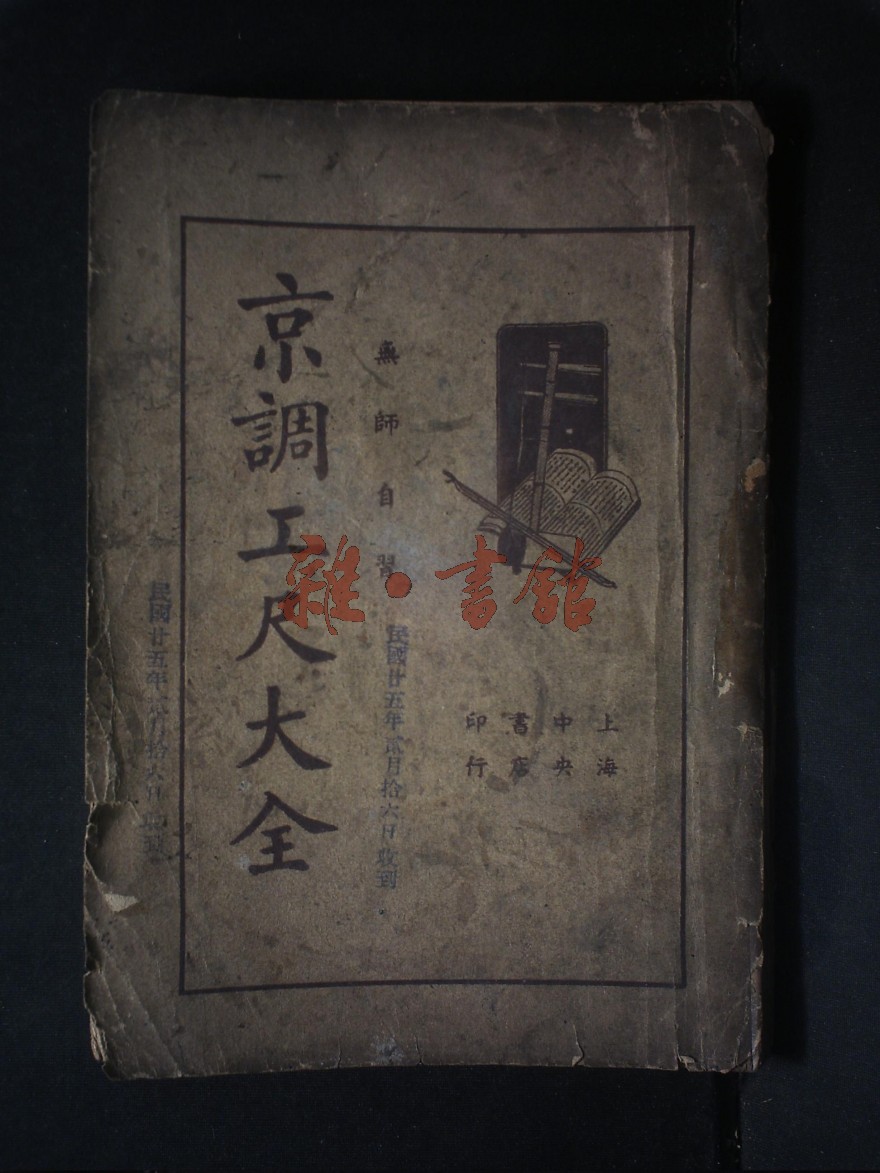 上海
中央
書店
印行
無師自習
京調工尺大全
民國廿五年貳月拾六日收到
民國廿五年貳月拾六日收到
雜·書舘